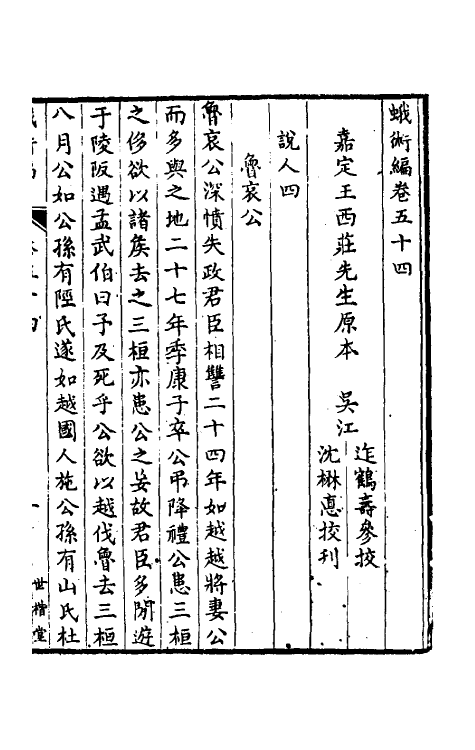 蛾術編卷五十四
嘉定王西莊先生原本 吳江
迮鶴壽參挍
沈楙悳挍刊
說人四
魯哀公
魯哀公深憤失政君臣相讐二十四年如越越將妻公
而多與之地二十七年季康子卒公弔降禮公患三桓
之侈欲以諸矦去之三桓亦患公之妄故君臣多閒遊
于陵阪遇孟武伯曰予及死乎公欲以越伐魯去三桓
八月公如公孫有陘氏遂如越國人施公孫有山氏杜
世楷堂